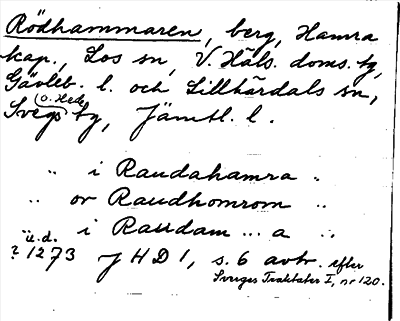 Rödhammaren, berg, Hamra
kap., Los sn, V. Häls. doms. tg,
Gävleb. l. och Lillhärdals sn,
o. Hede
Svegs tg, Jämtl. l.
" i Raudahamra "
" or Raudhomrom "
i Raudam ... a "
ü.d.
? 1273 JHD 1, s. 6 avtr. efter
Sveriges Traktater I, nr 120.